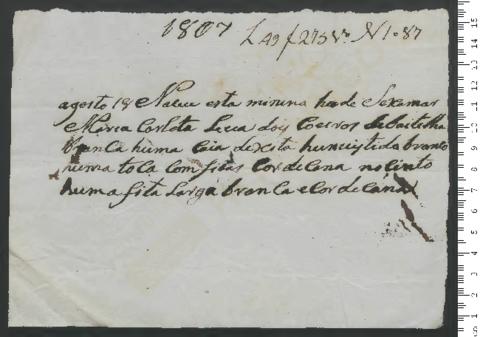 1807 L 49 f 275 vº N 1087
agosto 18 Naceu esta minina hade Sexamar
Maria Carlota Leva dois Coeiros de baitilha
branca huma Cia de xita hum vistido branco
huma toca Com fitas Cor de Cana no cinto
huma fita Larga branca e Cor de Cana